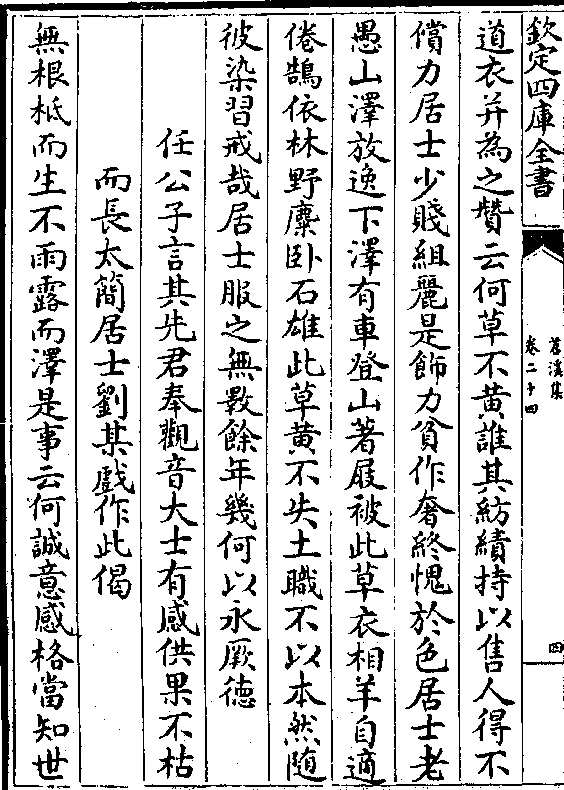 欽定四庫全書
苕溪集
卷二十四
四
道衣并為之贊云何草不黄誰其紡績持以售人得不
償力居士少賤組麗是飾力貧作奢終愧於色居士老
愚山澤放逸下澤有車登山著屐被此草衣相羊自適
倦鵠依林野麋卧石雄此草黄不失土職不以本然随
彼染習戒哉居士服之無斁餘年幾何以永厥德
任公子言其先君奉觀音大士有感供果不枯
而長太簡居士劉某戲作此偈
無根柢而生不雨露而澤是事云何誠意感格當知世